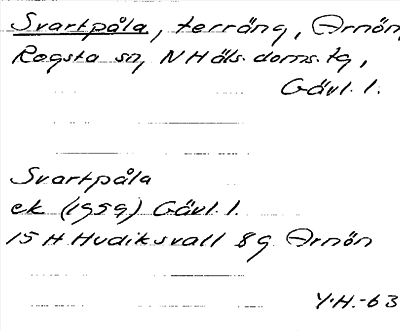 Svartpåla, terräng, Arnön,
Rogsta sn, N Häls. doms. tg,
Gävl. l.
Svartpåla
ek (1959) Gävl. l.
15 H Hudiksvall 8 g Arnön
Y.H.-63